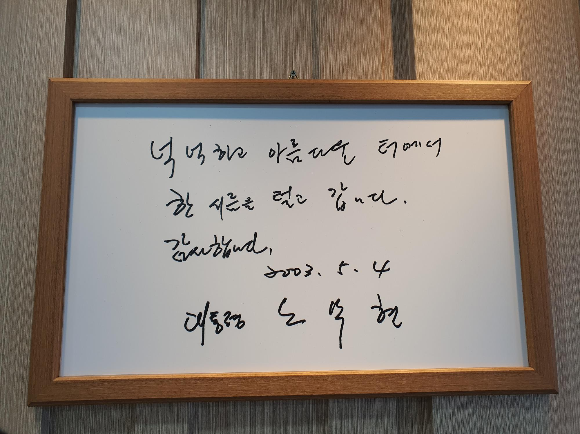 넉넉하고 아름다운 터에서
한 시름을 털고 갑니다.
감사합니다.
2003. 5. 4
대통령 노무현